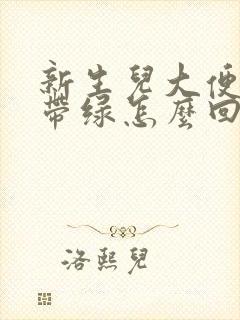 新生兒大便
帶绿怎麼回
洛熙兒